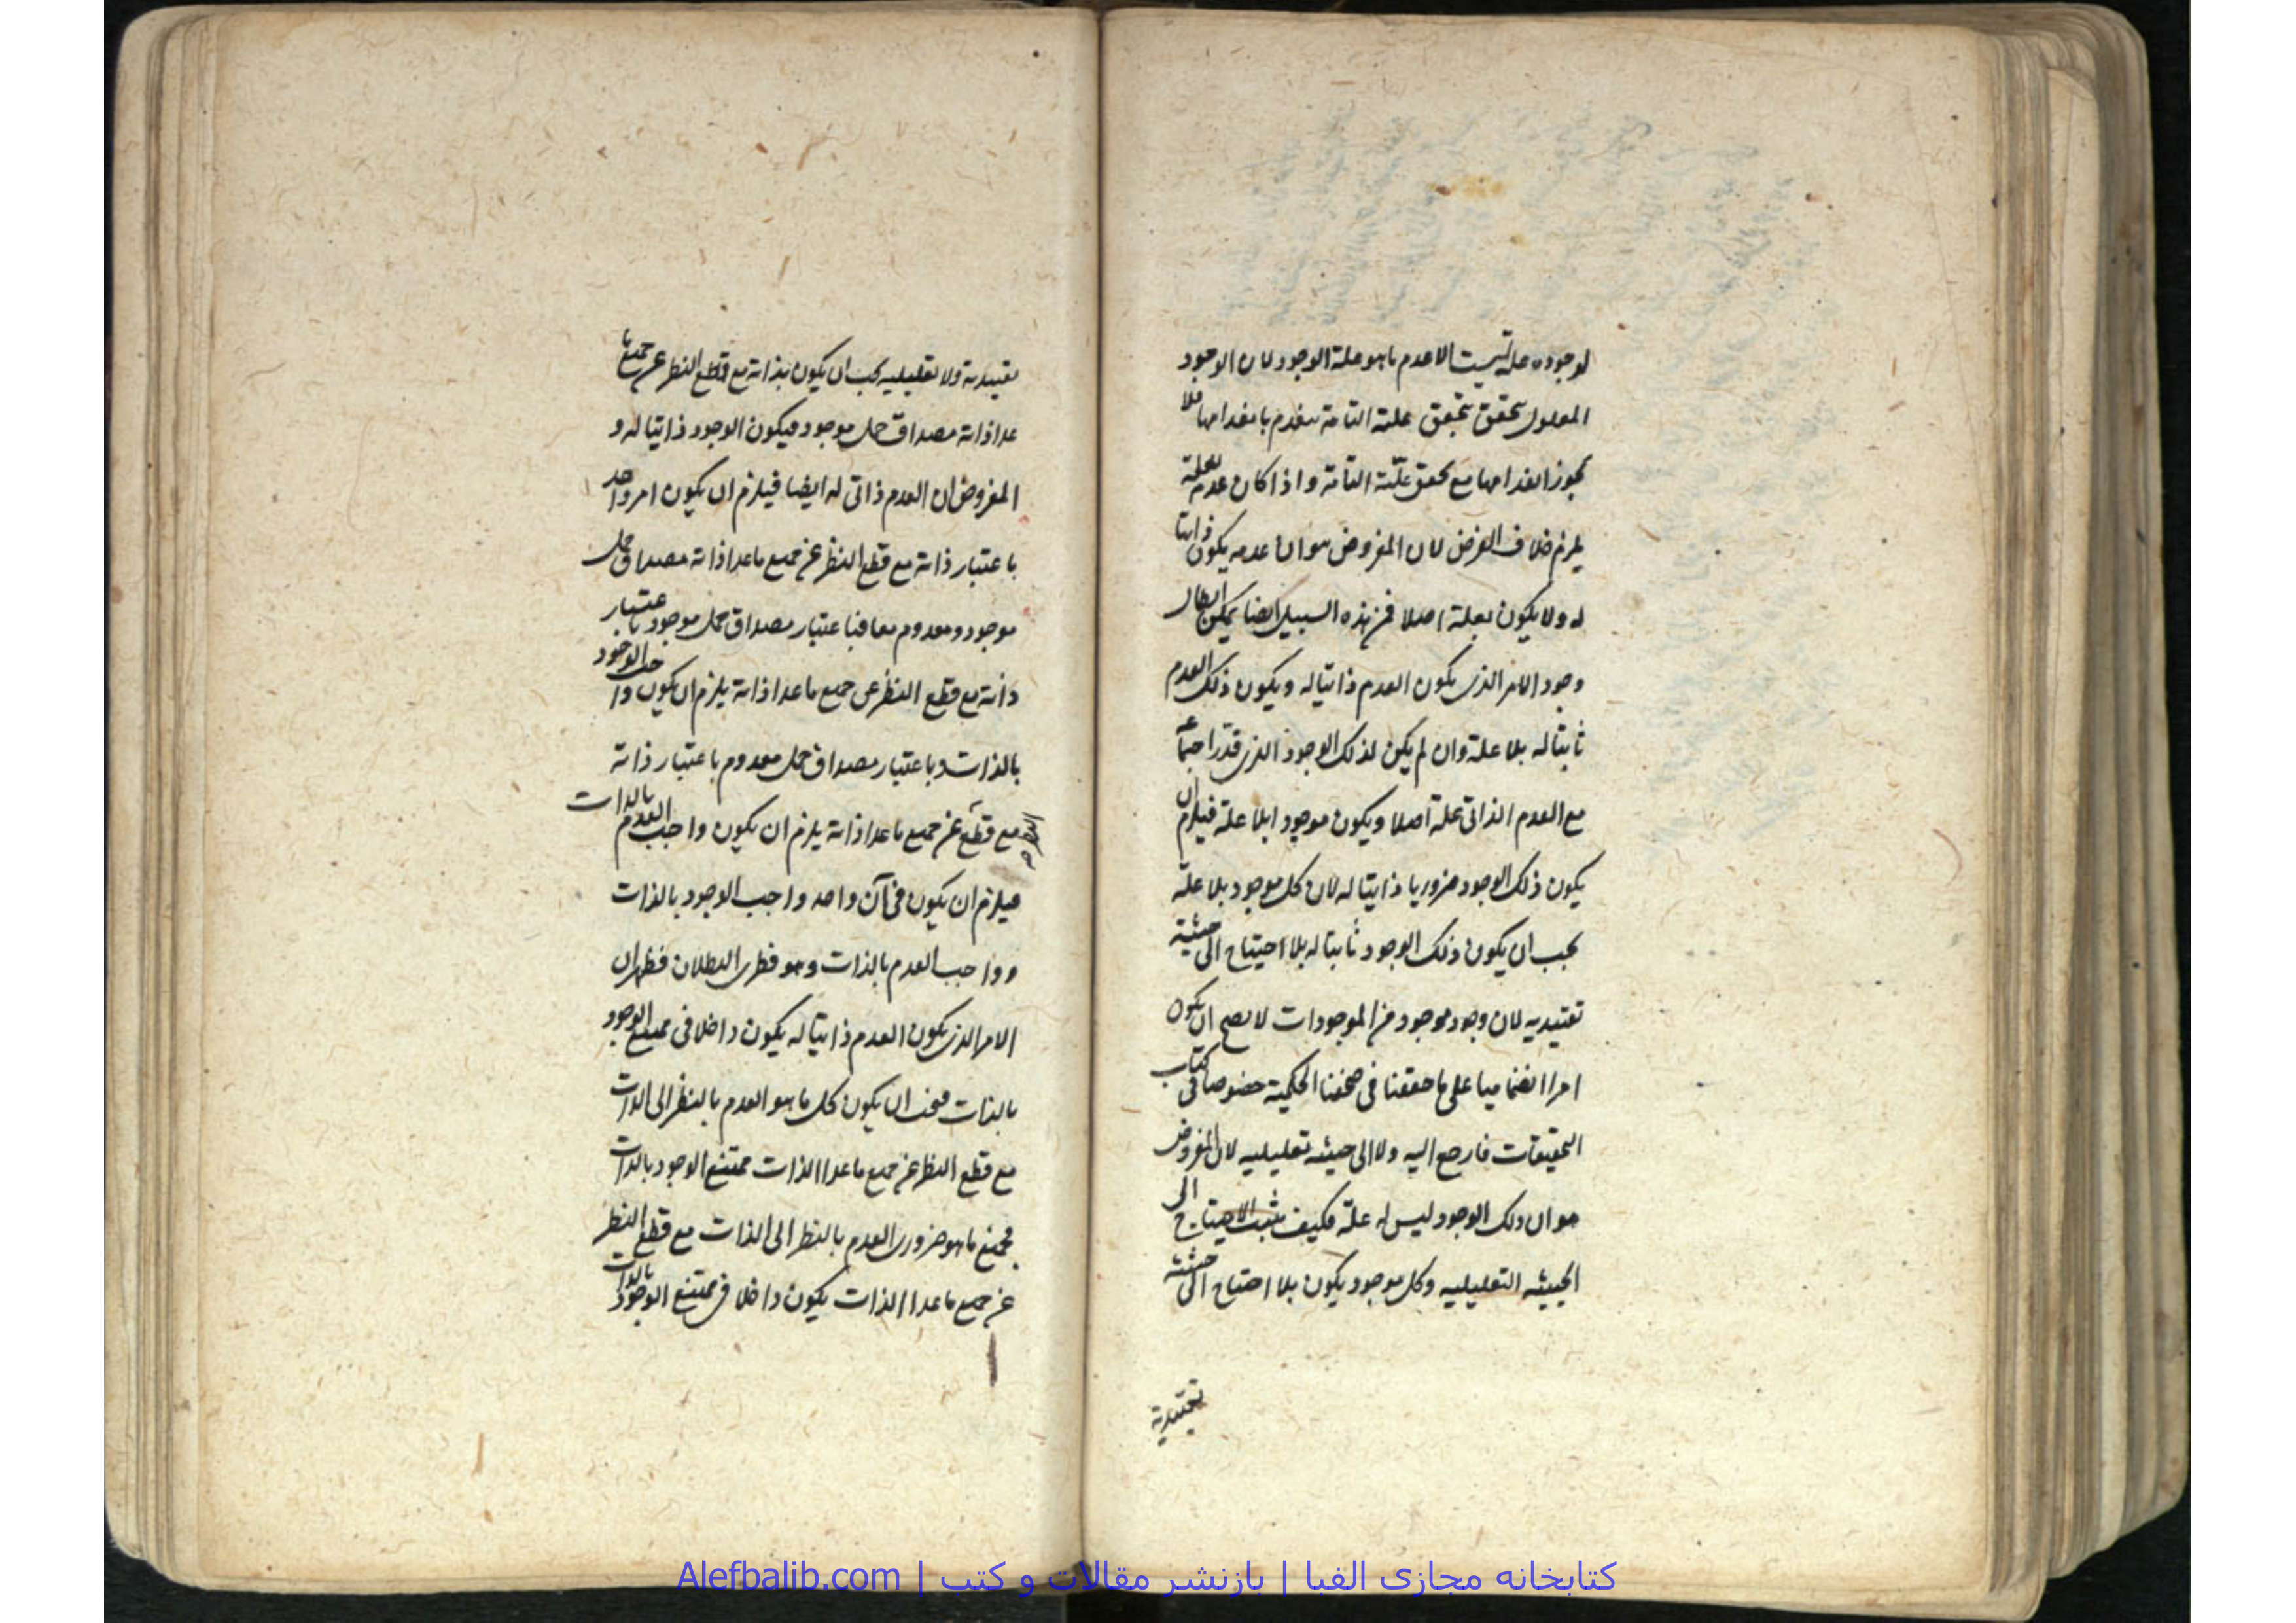 لوجوده علة ليست الا عدم ما هو علة الوجود لان الوجود
المعلول يتحقق بتحقق علته التامة ينعدم بانعدامها فلا
يجوز انعدامها مع تحقق علته التامة واذا كان عدمه لعلة
يلزم خلاف الفرض لان المفروض هو ان عدمه يكون ذاتيا
له ولا يكون لعلة اصلا فمن هذه السبيل ايضا يمكن ابطال
وجود الامر الذى يكون العدم ذاتيا له ويكون ذلك العدم
ثابتا له بلا علة وان لم يكن لذلك الوجود الذى قدر اجتماعه
مع العدم الذاتى علة اصلا ويكون موجودا بلا علة فيلزم ان
يكون ذلك الوجود ضروريا ذاتيا له لان كل موجود بلا علة
يجب ان يكون ذلك الوجود ثابتا له بلا احتياج الى حيثية
تقييديه لان وجود موجود من الموجودات لا يصح ان يكون
امرا انضماميا على ما حققنا فى صحفنا الحكمية خصوصا فى كتاب
التحقيقات فارجع اليه ولا الى حيثيه تعليليه لان المفروض
هو ان ذلك الوجود ليس له علة فكيف يثبت الاحتياج الى
الحيثيه التعليليه وكل موجود يكون بلا احتياج الى حيثيته
تقييدية
تقييدية ولا تعليليه يجب ان يكون بذاته مع قطع النظر عن جميع ما
عدا ذاته مصداق حمل موجود فيكون الوجود ذاتيا له و
المفروض ان العدم ذاتى له ايضا فيلزم ان يكون امر واحد
باعتبار ذاته مع قطع النظر عن جميع ما عدا ذاته مصداق حمل
موجود ومعدوم معا فباعتبار مصداق حمل موجود باعتبار
ذاته مع قطع النظر عن جميع ما عدا ذاته يلزم ان يكون واجب الوجود
بالذات وباعتبار مصداق حمل معدوم باعتبار ذاته
مع قطع النظر عن جميع ما عدا ذاته يلزم ان يكون واجب العدم بالذات
فيلزم ان يكون فى آن واحد واجب الوجود بالذات
وواجب العدم بالذات وهو فطرى البطلان فظهر ان
الامر الذى يكون العدم ذاتيا له يكون داخلا فى ممتنع الوجود
بالذات فيجب ان يكون كل ما هو العدم بالنظر الى الذات
مع قطع النظر عن جميع ما عدا الذات ممتنع الوجود بالذات
فجميع ما هو ضرورى العدم بالنظر الى الذات مع قطع النظر
عن جميع ما عدا الذات يكون داخلا فى ممتنع الوجود بالذات
كتابخانه مجازی الفبا | بازنشر مقالات و کتب | Alefbalib.com